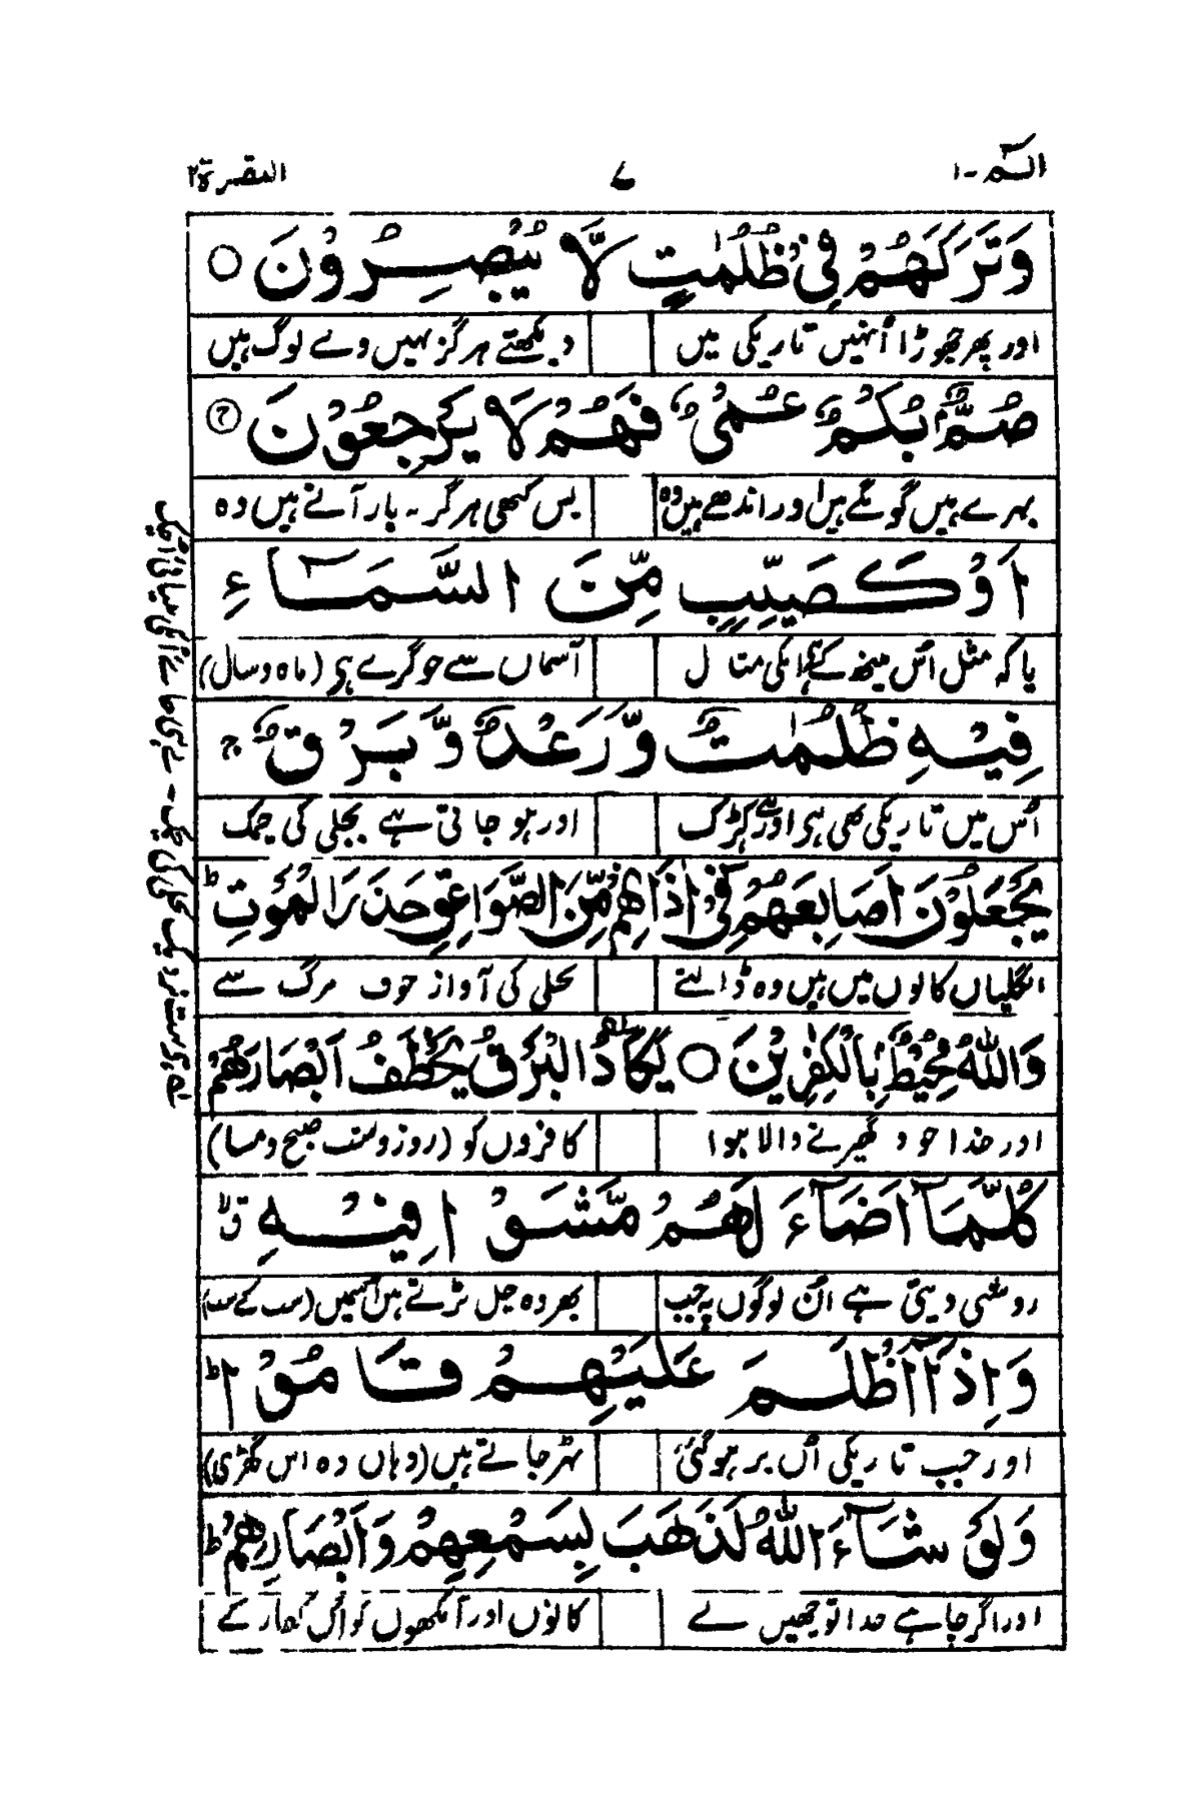 الٓمّٓ-۱ ۷ البقرۃ ۲
وَتَرَكَهُمْ فِىْ ظُلُمٰتٍ لَّا يُبْصِرُوْنَ ○
اور پھر چھوڑا اُنہیں تاریکی میں دیکھتے ہرگز نہیں وے لوگ ہیں
صُمٌّۢ بُكْمٌ عُمْىٌ فَهُمْ لَا يَرْجِعُوْنَ
بہرے ہیں گونگے ہیں اور اندھے ہیں وہ بس کبھی ہرگز - بار آنے ہیں وہ
اَوْ كَصَيِّبٍ مِّنَ السَّمَآءِ
یا کہ مثل اُس مینھ کے ہے انکی مثال آسماں سے جو گرے ہی (ماہ و سال)
فِيْهِ ظُلُمٰتٌ وَّرَعْدٌ وَّبَرْقٌ ج
اُس میں تاریکی بھی ہی اور ہے کڑک اور ہو جاتی ہے بجلی کی چمک
يَجْعَلُوْنَ اَصَابِعَهُمْ فِىْٓ اٰذَانِهِمْ مِّنَ الصَّوَاعِقِ حَذَرَ الْمَوْتِ ط
انگلیاں کانوں میں ہیں وہ ڈالتے بجلی کی آواز خوف مرگ سے
وَاللّٰهُ مُحِيْطٌۢ بِالْكٰفِرِيْنَ ○ يَكَادُ الْبَرْقُ يَخْطَفُ اَبْصَارَهُمْ
اور خدا خود گھیرنے والا ہوا کافروں کو (روز و شب صبح و مسا)
كُلَّمَآ اَضَآءَ لَهُمْ مَّشَوْا فِيْهِ
روشنی دیتی ہے اُن لوگوں پہ جب پھر وہ چل پڑتے ہیں اُسمیں (سب کے سب)
وَاِذَآ اَظْلَمَ عَلَيْهِمْ قَامُوْا ط
اور جب تاریکی اُس پر ہو گئی ٹہر جاتے ہیں (وہاں وہ اس گھڑی)
وَلَوْ شَآءَ اللّٰهُ لَذَهَبَ بِسَمْعِهِمْ وَاَبْصَارِهِمْ ط
اور اگر چاہے خدا تو چھین لے کانوں اور آنکھوں کو اُس کفار کے